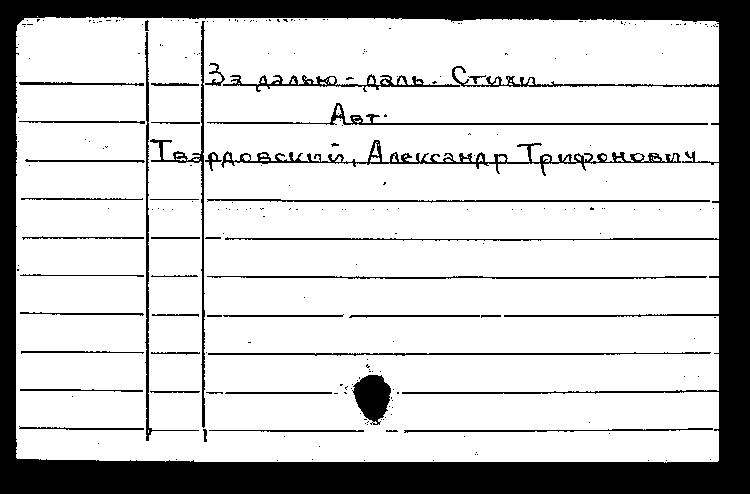 За далью-даль. Стихи.
Авт.
Твардовский, Александр Трифонович.